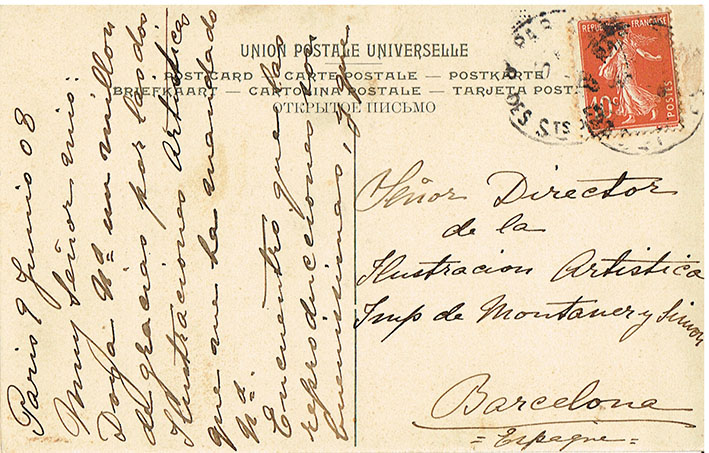 UNION POSTALE UNIVERSELLE
POSTCARD — CARTE POSTALE — POSTKARTE
BRIEFKAART — CARTOLINA POSTALE — TARJETA POST
ОТКРЫТОЕ ПИСЬМО
REPUBLIQUE FRANÇAISE
10c
POSTES
PAR
DES STS
Paris 9 Junio 08
Muy Señor mio:
Doy a Vd un millon
de gracias por las dos
Ilustraciones Artisticas
que me ha mandado
Vd.
Encuentro que las
reproducciones son
buenisimas, y que
Señor Director
de la
Ilustracion Artistica
Imp de Montaner y Simon
Barcelona
= Espagne =